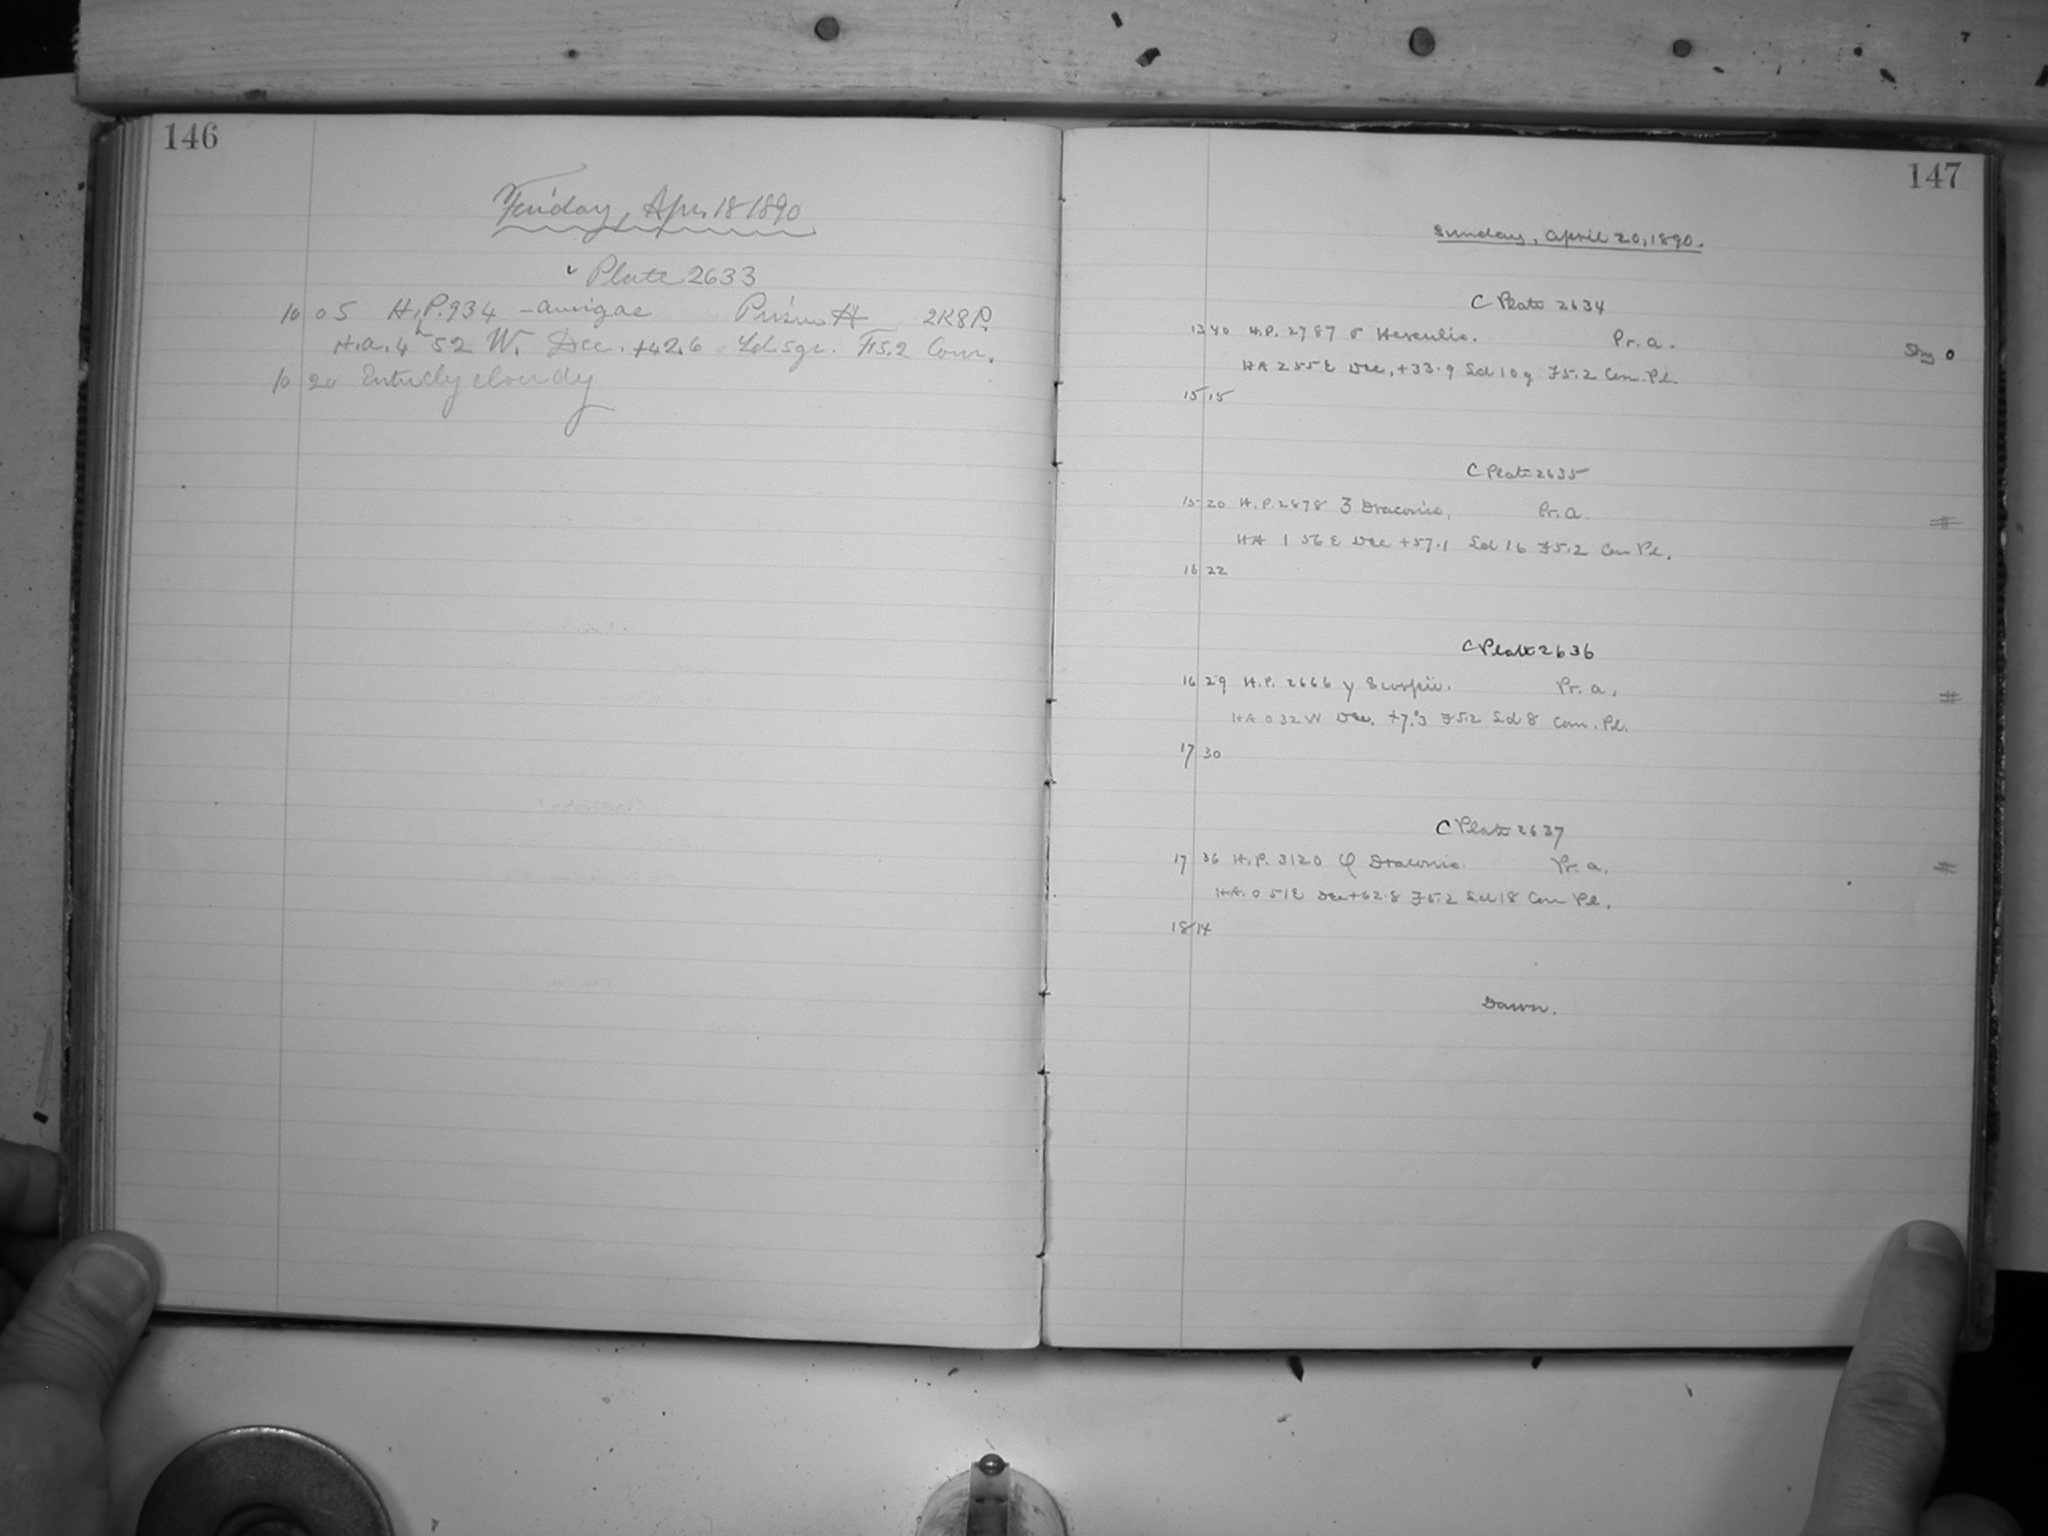 146
Friday, Apr. 18 1890
✓ Plate 2633
10 05 H.P. 934 - aurigae Prism H 2K8P.
H.a. 4h 52 W. Dec. +42.6 F15.2 Com.
10 20 Entirely cloudy
147
Sunday, April 20, 1890.
C Plate 2634
13 40 H.P. 2787 σ Herculis. Pr. a. 0
HA 2 55 E Dec, +33.9 Scl 10 F5.2 Com. Pl.
15 15
C Plate 2635
15 20 H.P. 2878 3 Draconis. Pr. a. #
HA 1 56 E Dec +57.1 Scl 16 F5.2 Com Pl.
16 22
C Plate 2636
16 29 H.P. 2666 γ Scorpii. Pr. a. #
HA 0 32 W Dec, +7.°3 F5.2 Scl 8 Com. Pl.
17 30
C Plate 2637
17 36 H.P. 3120 φ Draconis. Pr. a. #
HA. 0 51 E Dec +62.8 F5.2 Scl 18 Com Pl.
18 14
Dawn.